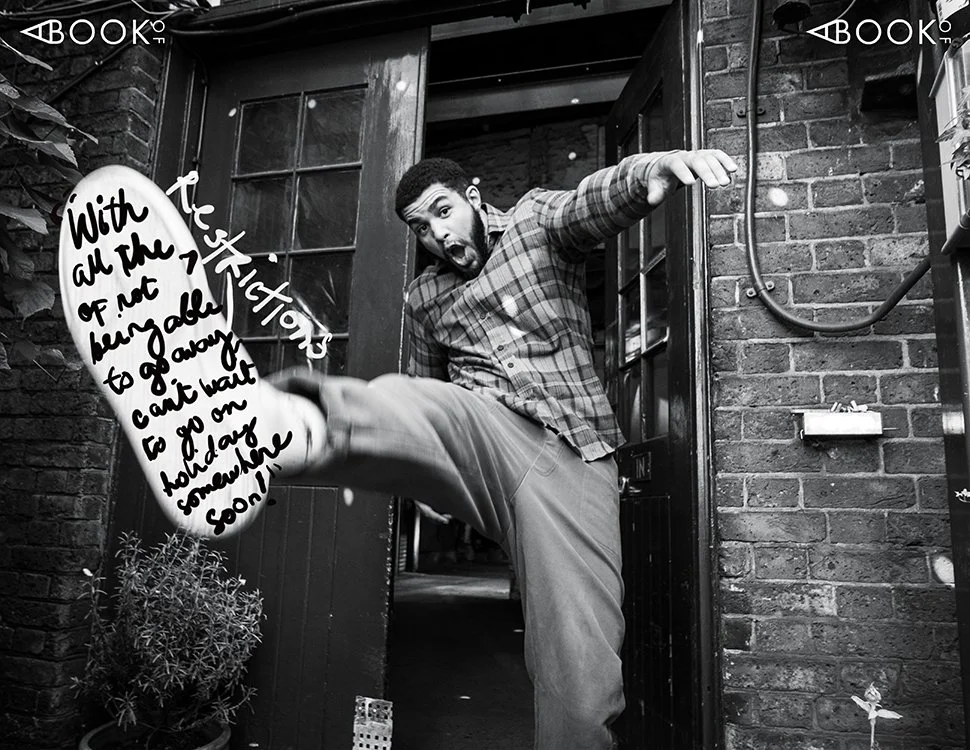 A BOOK OF
A BOOK OF
With
all the
Restrictions
of not
being able
to go away
can't wait
to go on
holiday
somewhere
soon!
IN